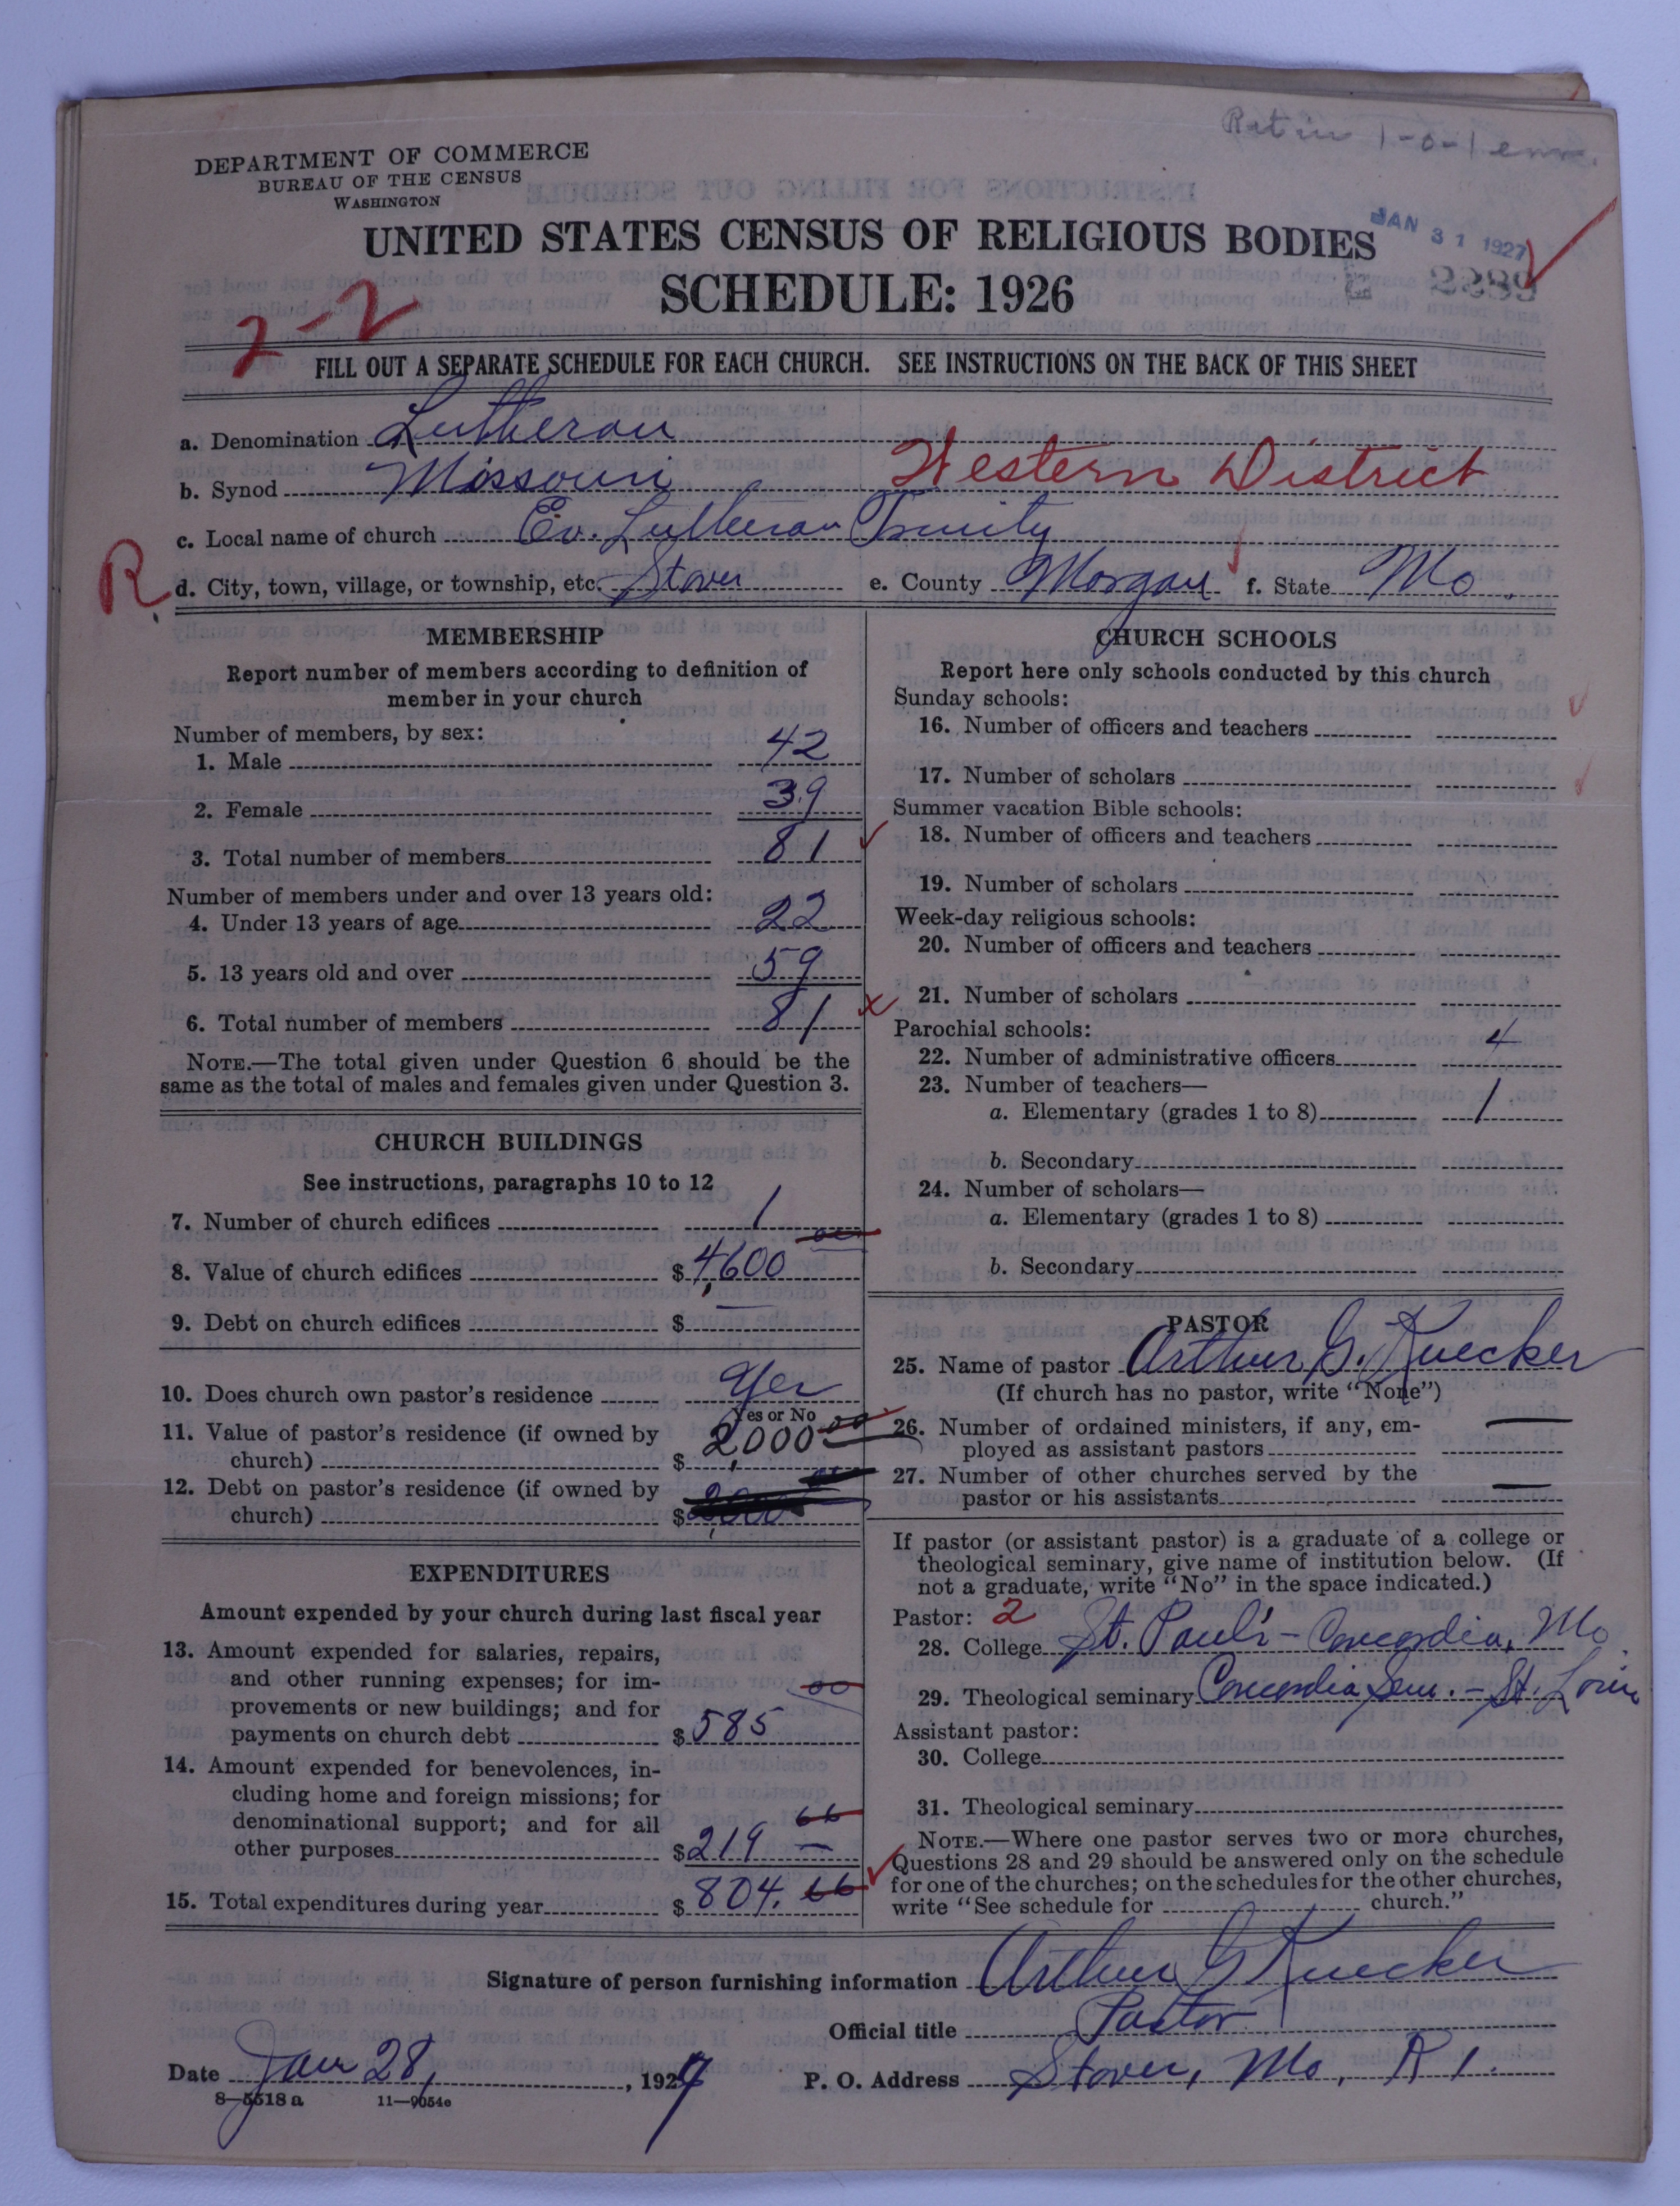 Retin 1-0-1 enm.
DEPARTMENT OF COMMERCE
BUREAU OF THE CENSUS
WASHINGTON
UNITED STATES CENSUS OF RELIGIOUS BODIES
SCHEDULE: 1926
JAN 31 1927
2-2
FILL OUT A SEPARATE SCHEDULE FOR EACH CHURCH. SEE INSTRUCTIONS ON THE BACK OF THIS SHEET
a. Denomination Lutheran
b. Synod Missouri Western District
c. Local name of church Ev. Lutheran Trinity
R. d. City, town, village, or township, etc. Stover e. County Morgan f. State Mo.
MEMBERSHIP
Report number of members according to definition of
member in your church
Number of members, by sex:
1. Male 42
2. Female 39
3. Total number of members 81
Number of members under and over 13 years old:
4. Under 13 years of age 22
5. 13 years old and over 59
6. Total number of members 81
NOTE.—The total given under Question 6 should be the
same as the total of males and females given under Question 3.
CHURCH BUILDINGS
See instructions, paragraphs 10 to 12
7. Number of church edifices 1
8. Value of church edifices $4,600 00
9. Debt on church edifices $
10. Does church own pastor's residence Yes
Yes or No
11. Value of pastor's residence (if owned by
church) $ 2,000 00
12. Debt on pastor's residence (if owned by
church) $ 2,000
EXPENDITURES
Amount expended by your church during last fiscal year
13. Amount expended for salaries, repairs,
and other running expenses; for im-
provements or new buildings; and for
payments on church debt $585 00
14. Amount expended for benevolences, in-
cluding home and foreign missions; for
denominational support; and for all
other purposes $219 66
15. Total expenditures during year $804.66
CHURCH SCHOOLS
Report here only schools conducted by this church
Sunday schools:
16. Number of officers and teachers
17. Number of scholars
Summer vacation Bible schools:
18. Number of officers and teachers
19. Number of scholars
Week-day religious schools:
20. Number of officers and teachers
21. Number of scholars
Parochial schools:
22. Number of administrative officers 4
23. Number of teachers—
a. Elementary (grades 1 to 8) 1
b. Secondary
24. Number of scholars—
a. Elementary (grades 1 to 8)
b. Secondary
PASTOR
25. Name of pastor Arthur G. Kuecker
(If church has no pastor, write "None")
26. Number of ordained ministers, if any, em-
ployed as assistant pastors —
27. Number of other churches served by the
pastor or his assistants —
If pastor (or assistant pastor) is a graduate of a college or
theological seminary, give name of institution below. (If
not a graduate, write "No" in the space indicated.)
Pastor: 2
28. College St. Paul's - Concordia, Mo.
29. Theological seminary Concordia Sem. - St. Louis
Assistant pastor:
30. College
31. Theological seminary
NOTE.—Where one pastor serves two or more churches,
Questions 28 and 29 should be answered only on the schedule
for one of the churches; on the schedules for the other churches,
write "See schedule for church."
Signature of person furnishing information Arthur G Kuecker
Official title Pastor
Date Jan 28, 1927 P. O. Address Stover, Mo, R 1.
8—5518 a 11—9054e